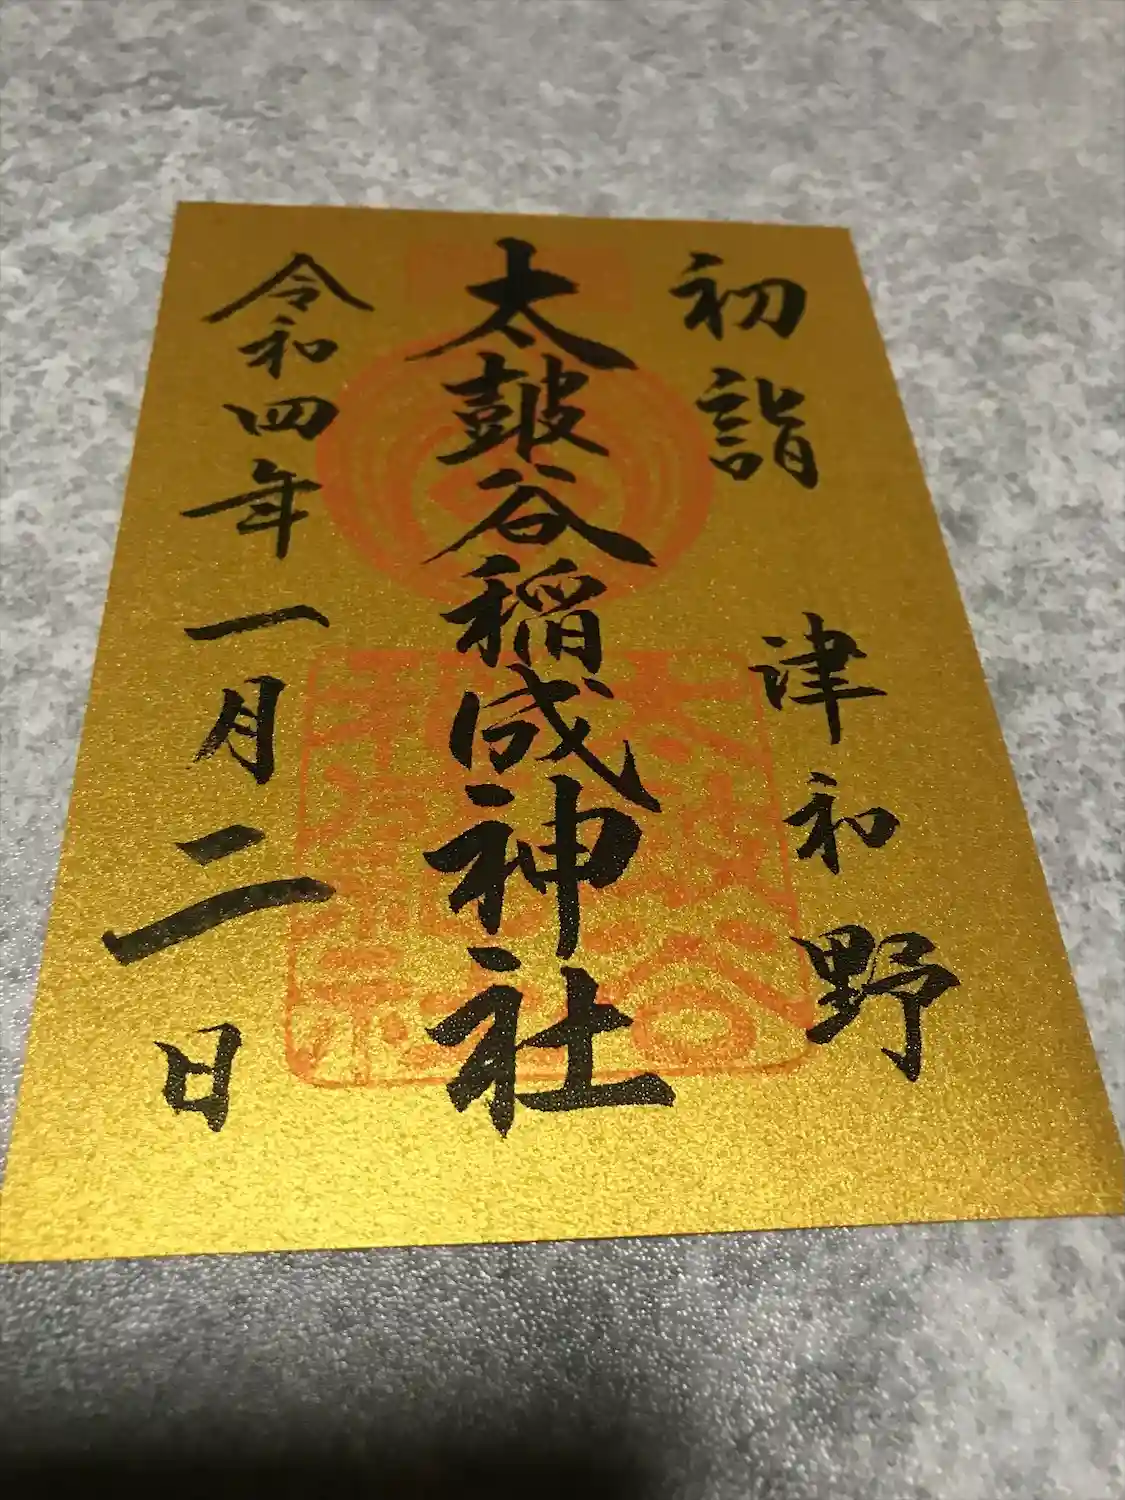 初詣 津和野
太鼓谷稲成神社
令和四年一月二日